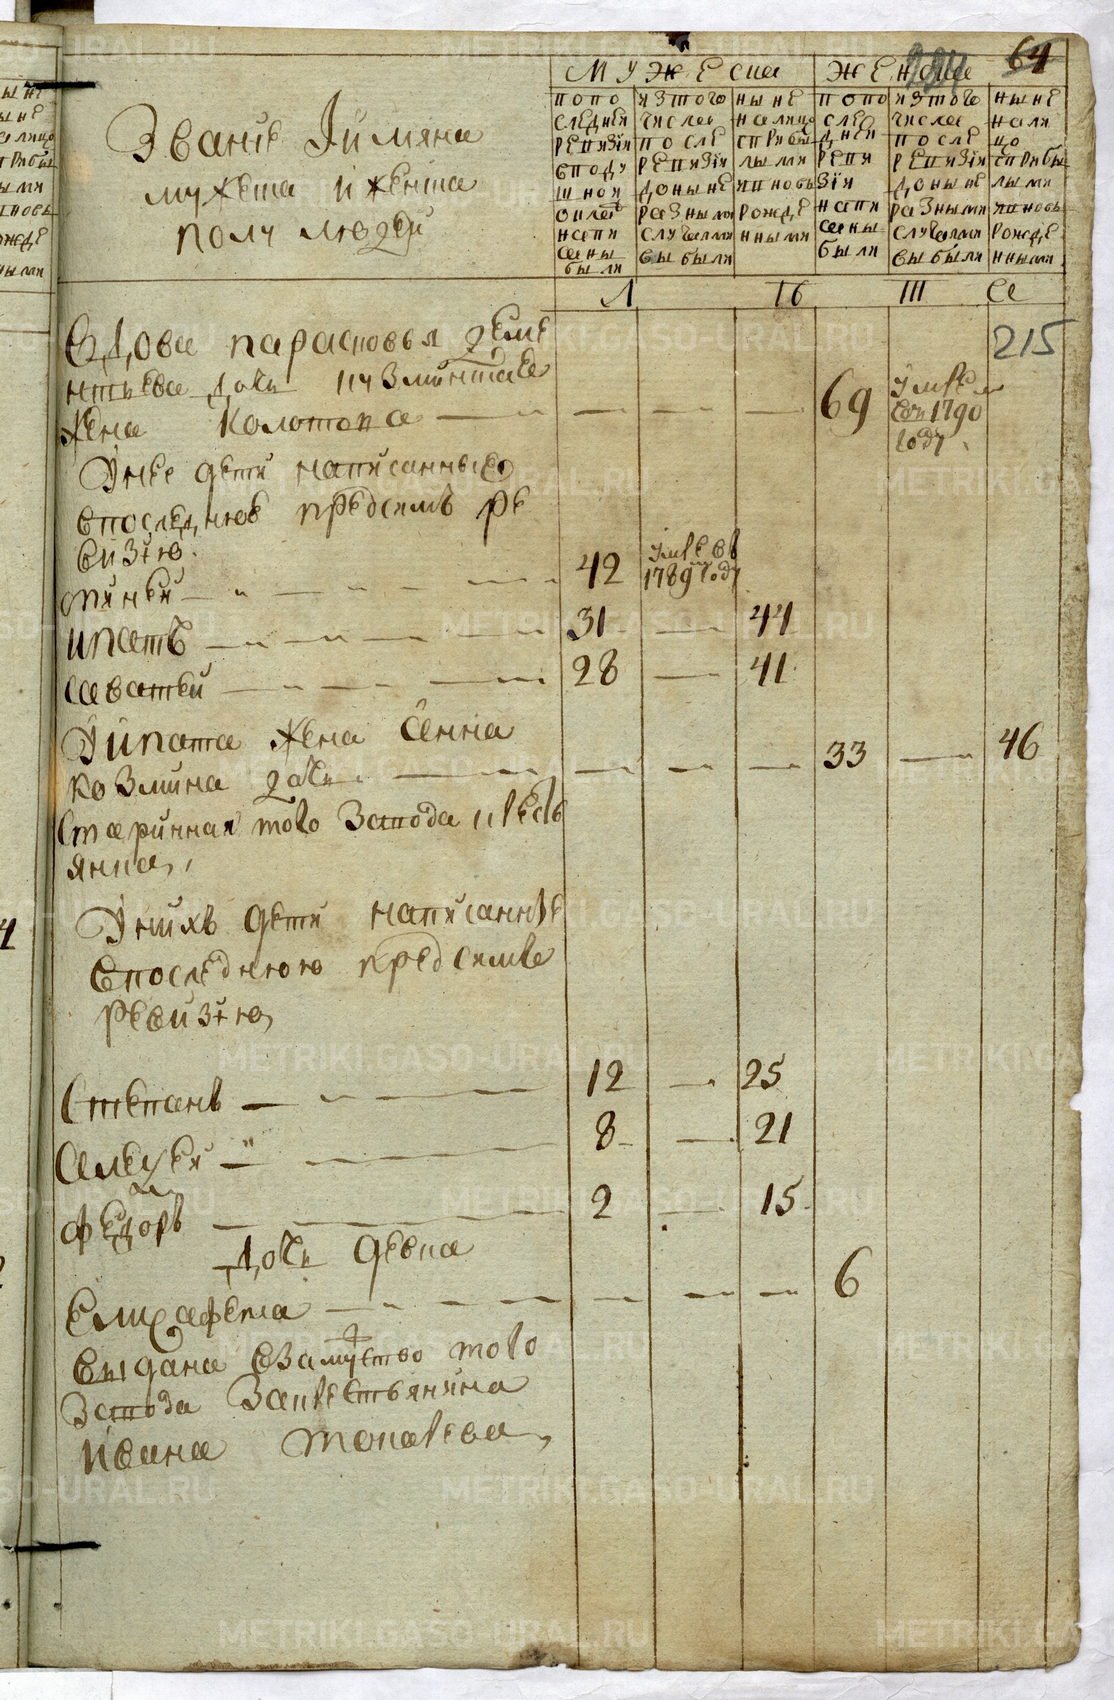 64
224
Званіе Іимяна
мужеска иженска
полу людей
мужеска
женска
попо следней ревизіи вподушной оклад написаны были
изтого числа после ревизіи доныне разными случаями выбыли
ныне налицо сприбылыми ивновь рожденными
попо следней ревизіи написаны были
изтого числа после ревизіи доныне разными случаями выбыли
ныне нали цо сприбылыми ивновь рожденными
215
вдова парасковья деме
нтьева дочь кузминская
жена Колотова 69 умре
вси 1790
году
Унее дети написанные
впоследнюю предсимъ ре
визію
42 умре въ
1789 году
ипатъ 31 44
саватей 28 41
Уипата жена анна
козмина дочь 33 46
старинная того завода кресть
янка
Унихъ дети написанные
впоследнюю предсимъ
ревизію
Степанъ 12 25
алексей 8 21
федоръ 2 15
дочь девка
6
выдана взамужство того
завода закрестьянина
ивана токарева
METRIKI.GASO-URAL.RU